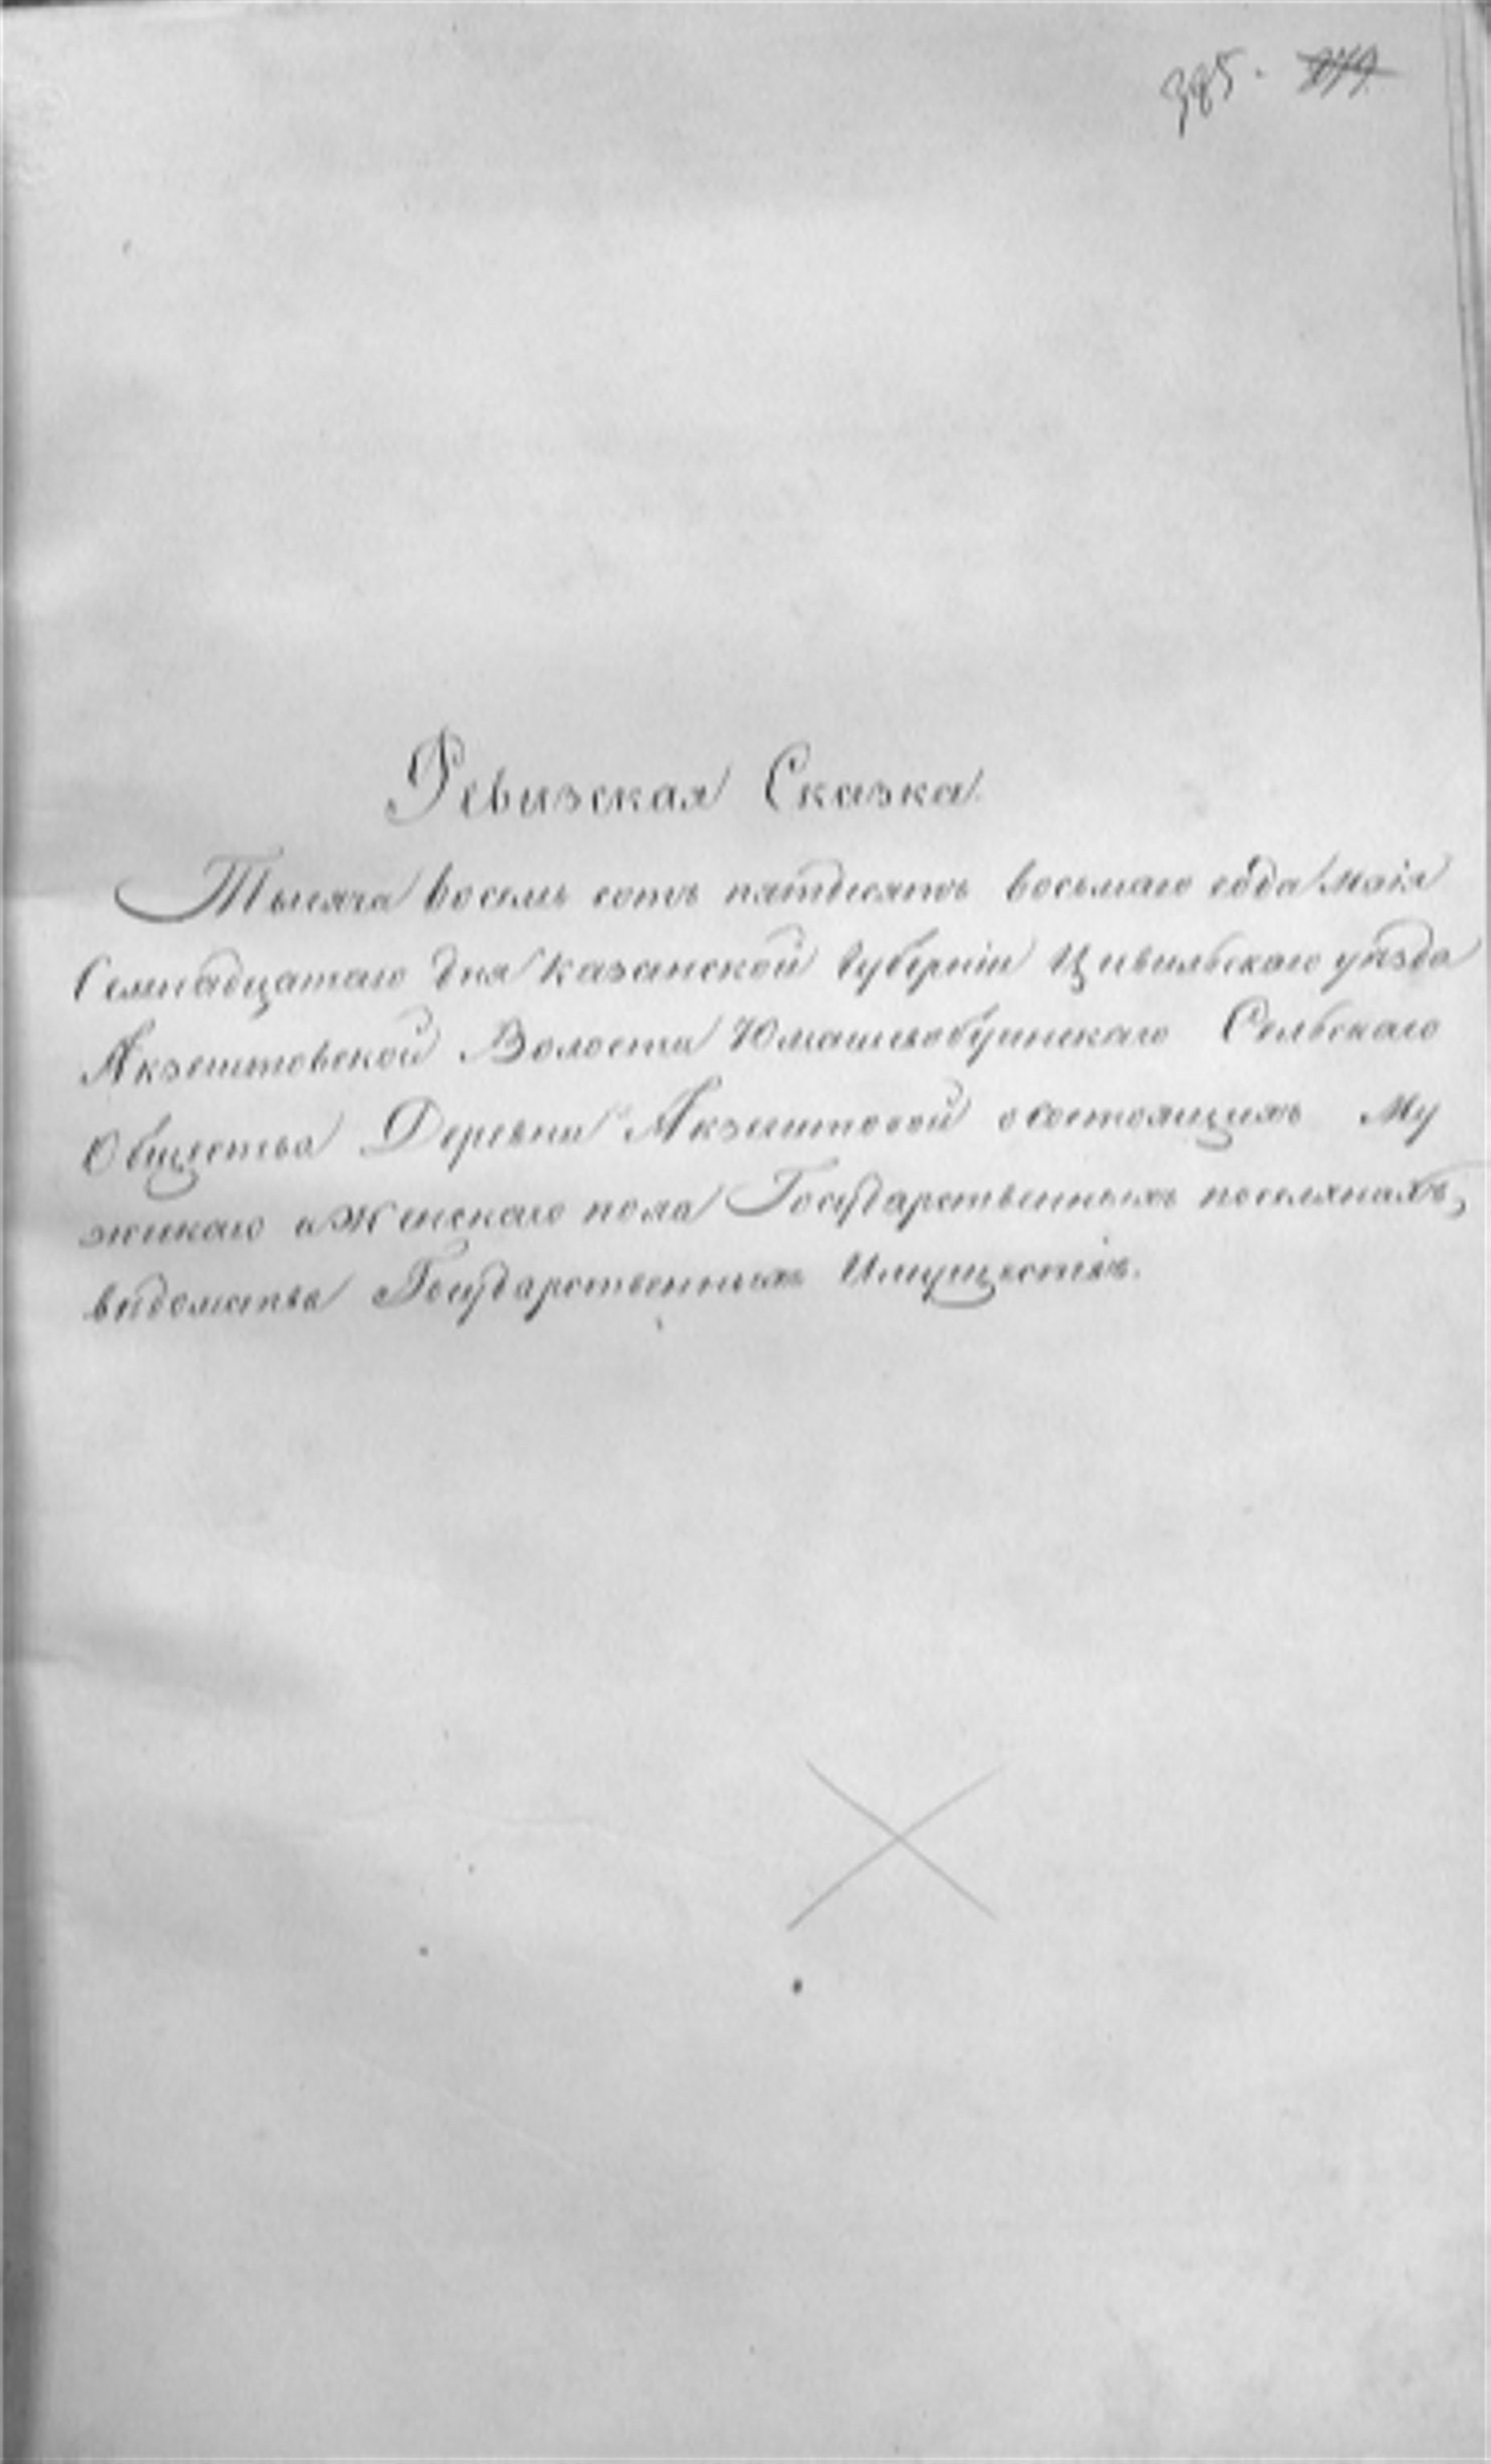 385.
Ревизская Сказка
Тысяча восемь сотъ пятдесятъ восьмаго года маія
Семнадцатаго дня Казанской Губерніи Цивильскаго уѣзда
Акзегитовской Волости Сельскаго
Общества Деревни Акзегитовой о состоящихъ Му
жскаго и Женскаго пола Государственныхъ поселянахъ,
вѣдомства Государственныхъ Имуществъ.